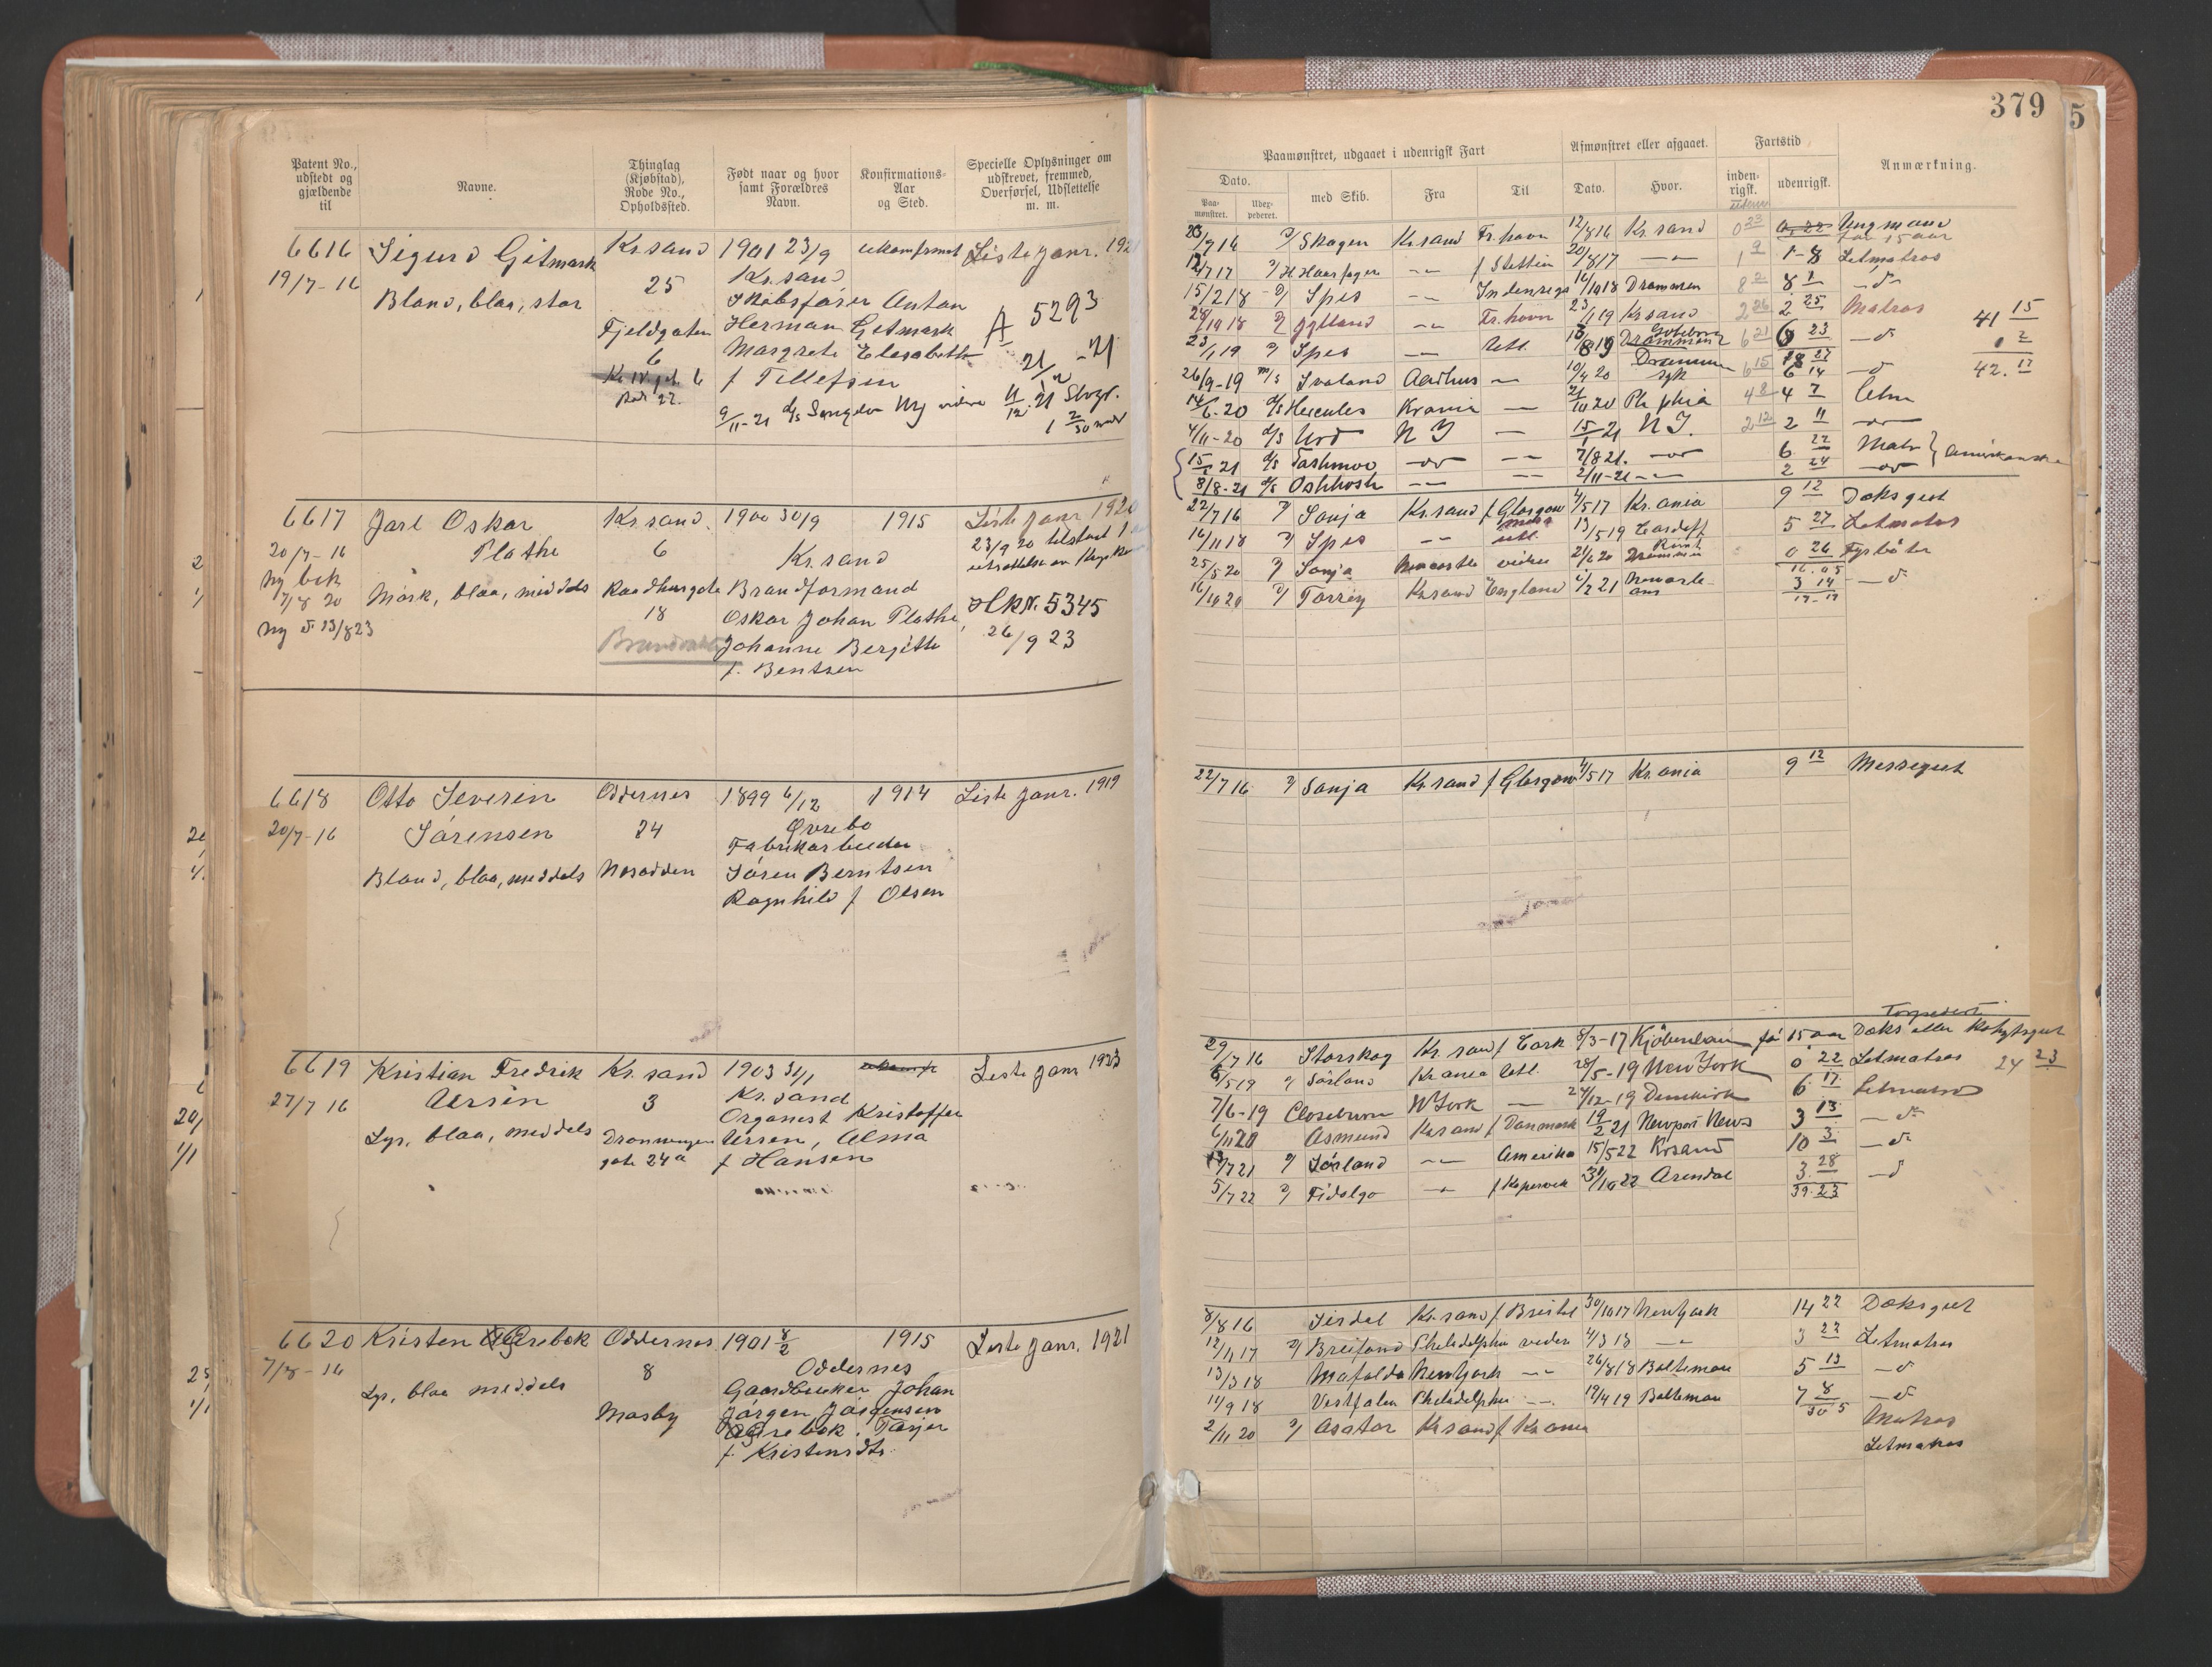 379
5
Patent No., udstedt og gjældende til
Navne.
Thinglag (Kjøbstad), Rode No., Opholdssted.
Født naar og hvor samt Forældres Navn.
Konfirmations-Aar og Sted.
Specielle Oplysninger om udskrevet, fremmed, Overførsel, Udslettelse m. m.
Paamønstret, udgaaet i udenrigsk Fart
Afmønstret eller afgaaet.
Fartstid
Anmærkning.
Dato.
Paa-mønstret.
Udex-pederet.
med Skib.
Fra
Til
Dato.
Hvor.
inden-rigsk.
udenrigsk.
6616 Sigurd Gitmark Kr.sand 1901 23/9 ukonfirmt Liste Janr. 192
19/7-16 25 Kr.sand
Blond, blaa, stor Skibsfører Anton
Fjeldgaten Herman Gitmark A 5293
6 Margrete Elisabeth
f Tellefsen
Rode 22.
9/11-21 d/s Songdal NY
6617 Jarl Oskar Kr.sand. 1900 30/9 1915 Liste Janr 1920
20/7-16 Plathe 6 Kr.sand 23/9 20 tilstaat
Ny bok
7/8 20 Mørk, blaa, middels Raadhusgate Brandformand
18 Oskar Johan Plathe, HkN. 5345
Ny d. 13/8 23
Brandvakt Johanne Bergitte 26/9 23
f. Bentsen
6618 Otto Severin Oddernes 1899 6/12 1914 Liste Janr. 1919
20/7-16 Sørensen 24 Øvrebo
Fabrikarbeider
Blond, blaa, middels Mosodden Søren Berntsen
Ragnhild f Olsen
6619 Kristian Fredrik Kr. sand 1903 31/1 Liste Janr 1923
27/7 16 Aersen 3 Kr. sand
Organist Kristoffer
Lys, blaa, middels Dronningen Aersen, Alma
gate 24a f Hansen
6620 Kristen Aagrebek Oddernes 1901 8/2 1915 Liste Janr. 1921
7/8-16 8 Oddernes
Lys, blaa middels Gaardbruker Johan
Mosby Jørgen Jørgensen
Aagrebek. Tarjer
f. Kristensdtr.
23/7 16 Skagen Kr.sand Fr.havn 12/8 16 Kr. sand 0 23 Ungmand
for 15 aar
12/7 17 H Haarfager -"- f Stettin 20/8 17 -"- 1 9 1-8 Letmatros
15/2 18 Spes -"- Indenrigs 16/10 18 Drammen 8 2 8 1 -d-
28/10 18 Jylland -"- Fr.havn 23/1 19 Kr sand 2 26 2 25 Matros 41 15
23/1 19 Spes -"- Utl. Göteborg 6 21 6 23 -d 0 2
26/9-19 m/s Ivaland Aarhus - 10/4 20 Drammen syk 6 15 6 14 -d 42. 17
14/6-20 d/s Hercules Krania - 21/10 20 Ph.phia 4 8 4 7 Letm
4/11-20 d/s Urd N Y - 15/1 21 N.Y. 2 12 2 11
15/1 21 d/s Tashmoo -"- -- 7/8 21. -"- 6 22 Matr } Amerikanske
8/8-21 d/s Oshkosh -- -- 2/11-21 -"- 2 24
22/7 16 Sonja Kr.sand f Glasgow 4/5 17 Kr.ania 9 12 Dæksgut
16/11 18 Spes -"- utl. 13/5 19 Cardiff 5 27 Letmatros
25/5 20 Sonja Newcastle videre 21/6 20 Drammen 0 26 Fyrbøter
16.05
16/10 20 Torrey Kr.sand England 1/2 21 Newcastle 3 14 -d
22/7 16 Sonja Kr.sand f Glasgow 4/5 17 Kr.ania 9 12 Messegut
Torpedert
29/7 16 Storskog Kr. sand f Cork 8/3-17 Kjøbenhavn før 15 aar Dæks eller Kahytsgut
6/5 19 Sørland Kr ania Utl. 28/5-19 New York 0 22 Letmatros 24 23
7/6-19 Closeburn N York - 24/12-19 Dunkirk 6 17 Letmatros
6/11 20 Asmund Kr sand f Danmark 19/2 21 Newport News 3 13 -d-
13/7 21 Sørland -"- Amerika 15/5 22 Krsand 10 3 -d-
5/7 22 Fidelgo -"- f Kopervik 31/10 22 Arendal 3. 28 -d
39. 23
8/8 16 Sirdal Kr.sand f Bristol 30/10 17 New York 14 22 Dæksgut
12/11 17 Breifond Philadelphia videre 4/3 18 -"- 3 22 Letmatros
13/3 18 Mafalda New York -"- 26/8 18 Baltimore 5 13 -d
11/9 18 Vestfalen Philadelphia -. 19/4 19 Baltimore 7 8 -d-
30 5
2/11 20 Asator Kr sand f Kr ania Matros
Letmatros